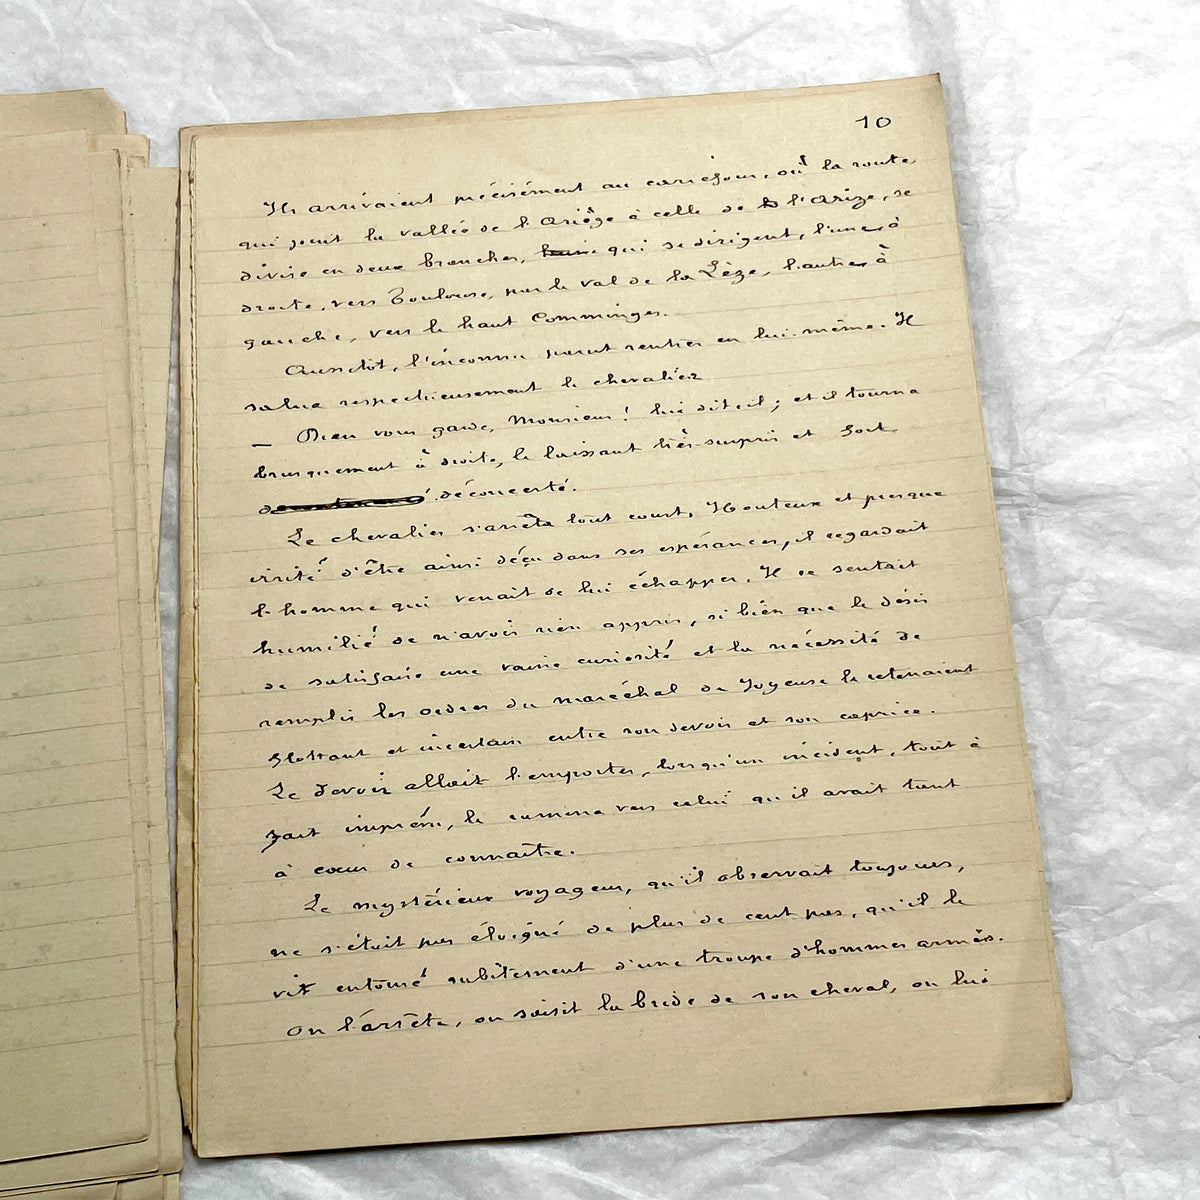 10
Ils arrivaient précisément au carrefour, où la route
qui joint la vallée de l'Ariège à celle de l'Arize, se
divise en deux branches, qui se dirigent, l'une, à
droite, vers Toulouse, par le val de la Lèze, l'autre, à
gauche, vers le haut Comminges.
Aussitôt, l'inconnu parut rentrer en lui-même. Il
salua respectueusement le chevalier
— Dieu vous garde, Monsieur ! lui dit-il ; et il tourna
brusquement à droite, le laissant très-surpris et fort
déconcerté.
Le chevalier s'arrêta tout court. Honteux et presque
irrité d'être ainsi déçu dans ses espérances, il regardait
l'homme qui venait de lui échapper. Il se sentait
humilié de n'avoir rien appris, si bien que le désir
de satisfaire une vaine curiosité et la nécessité de
remplir les ordres du maréchal de Joyeuse le retenaient
flottant et incertain entre son devoir et son caprice.
Le devoir allait l'emporter, lorsqu'un incident, tout à
fait imprévu, le ramena vers celui qu'il avait tant
à cœur de connaître.
Le mystérieux voyageur, qu'il observait toujours,
ne s'était pas éloigné de plus de cent pas, qu'il le
vit entouré subitement d'une troupe d'hommes armés.
On l'arrête, on saisit la bride de son cheval, on lui